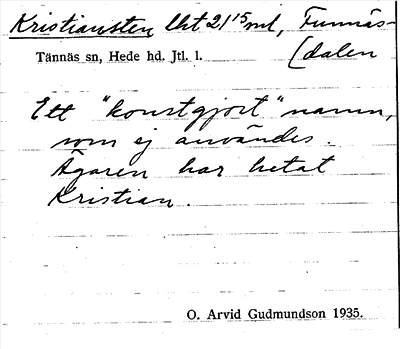 Kristiansten lht 21¹⁵ mt, Funnäs-
Tännäs sn, Hede hd. Jtl. l. [dalen
Ett "konstgjort" namn,
som ej användes.
Ägaren har hetat
Kristian.
O. Arvid Gudmundson 1935.